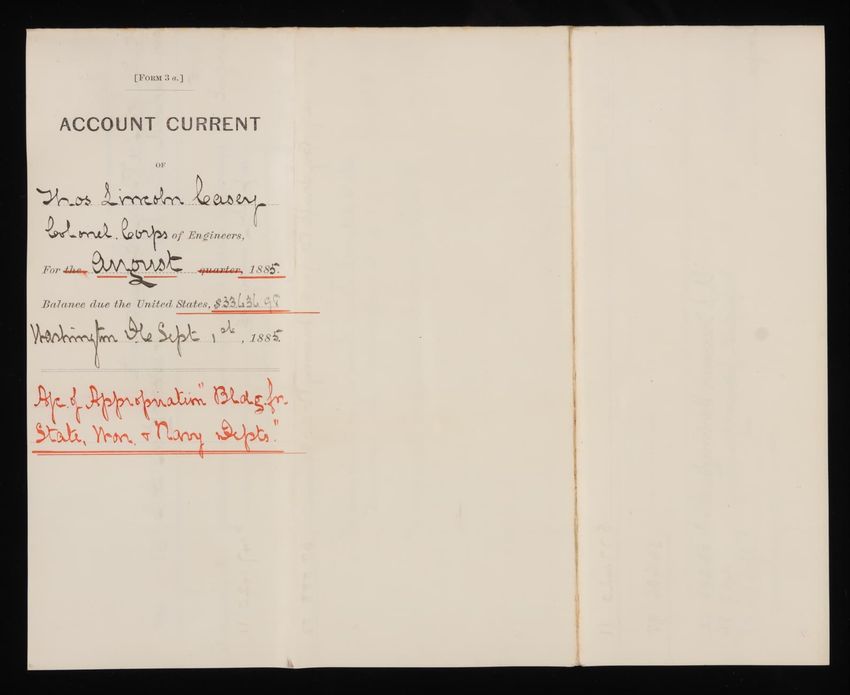 [FORM 3 a.]
ACCOUNT CURRENT
OF
Thos Lincoln Casey
Colonel. Corps of Engineers,
For the August quarter, 1885.
Balance due the United States, $33,636.98
Washington DC Sept 1st, 1885.
A/c. of Appropriation "Bldg. for
State, War, & Navy Depts."